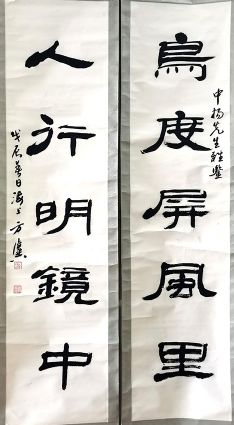 鳥度屏風里
中揚先生雅鑒
人行明鏡中
戊辰春日海上方